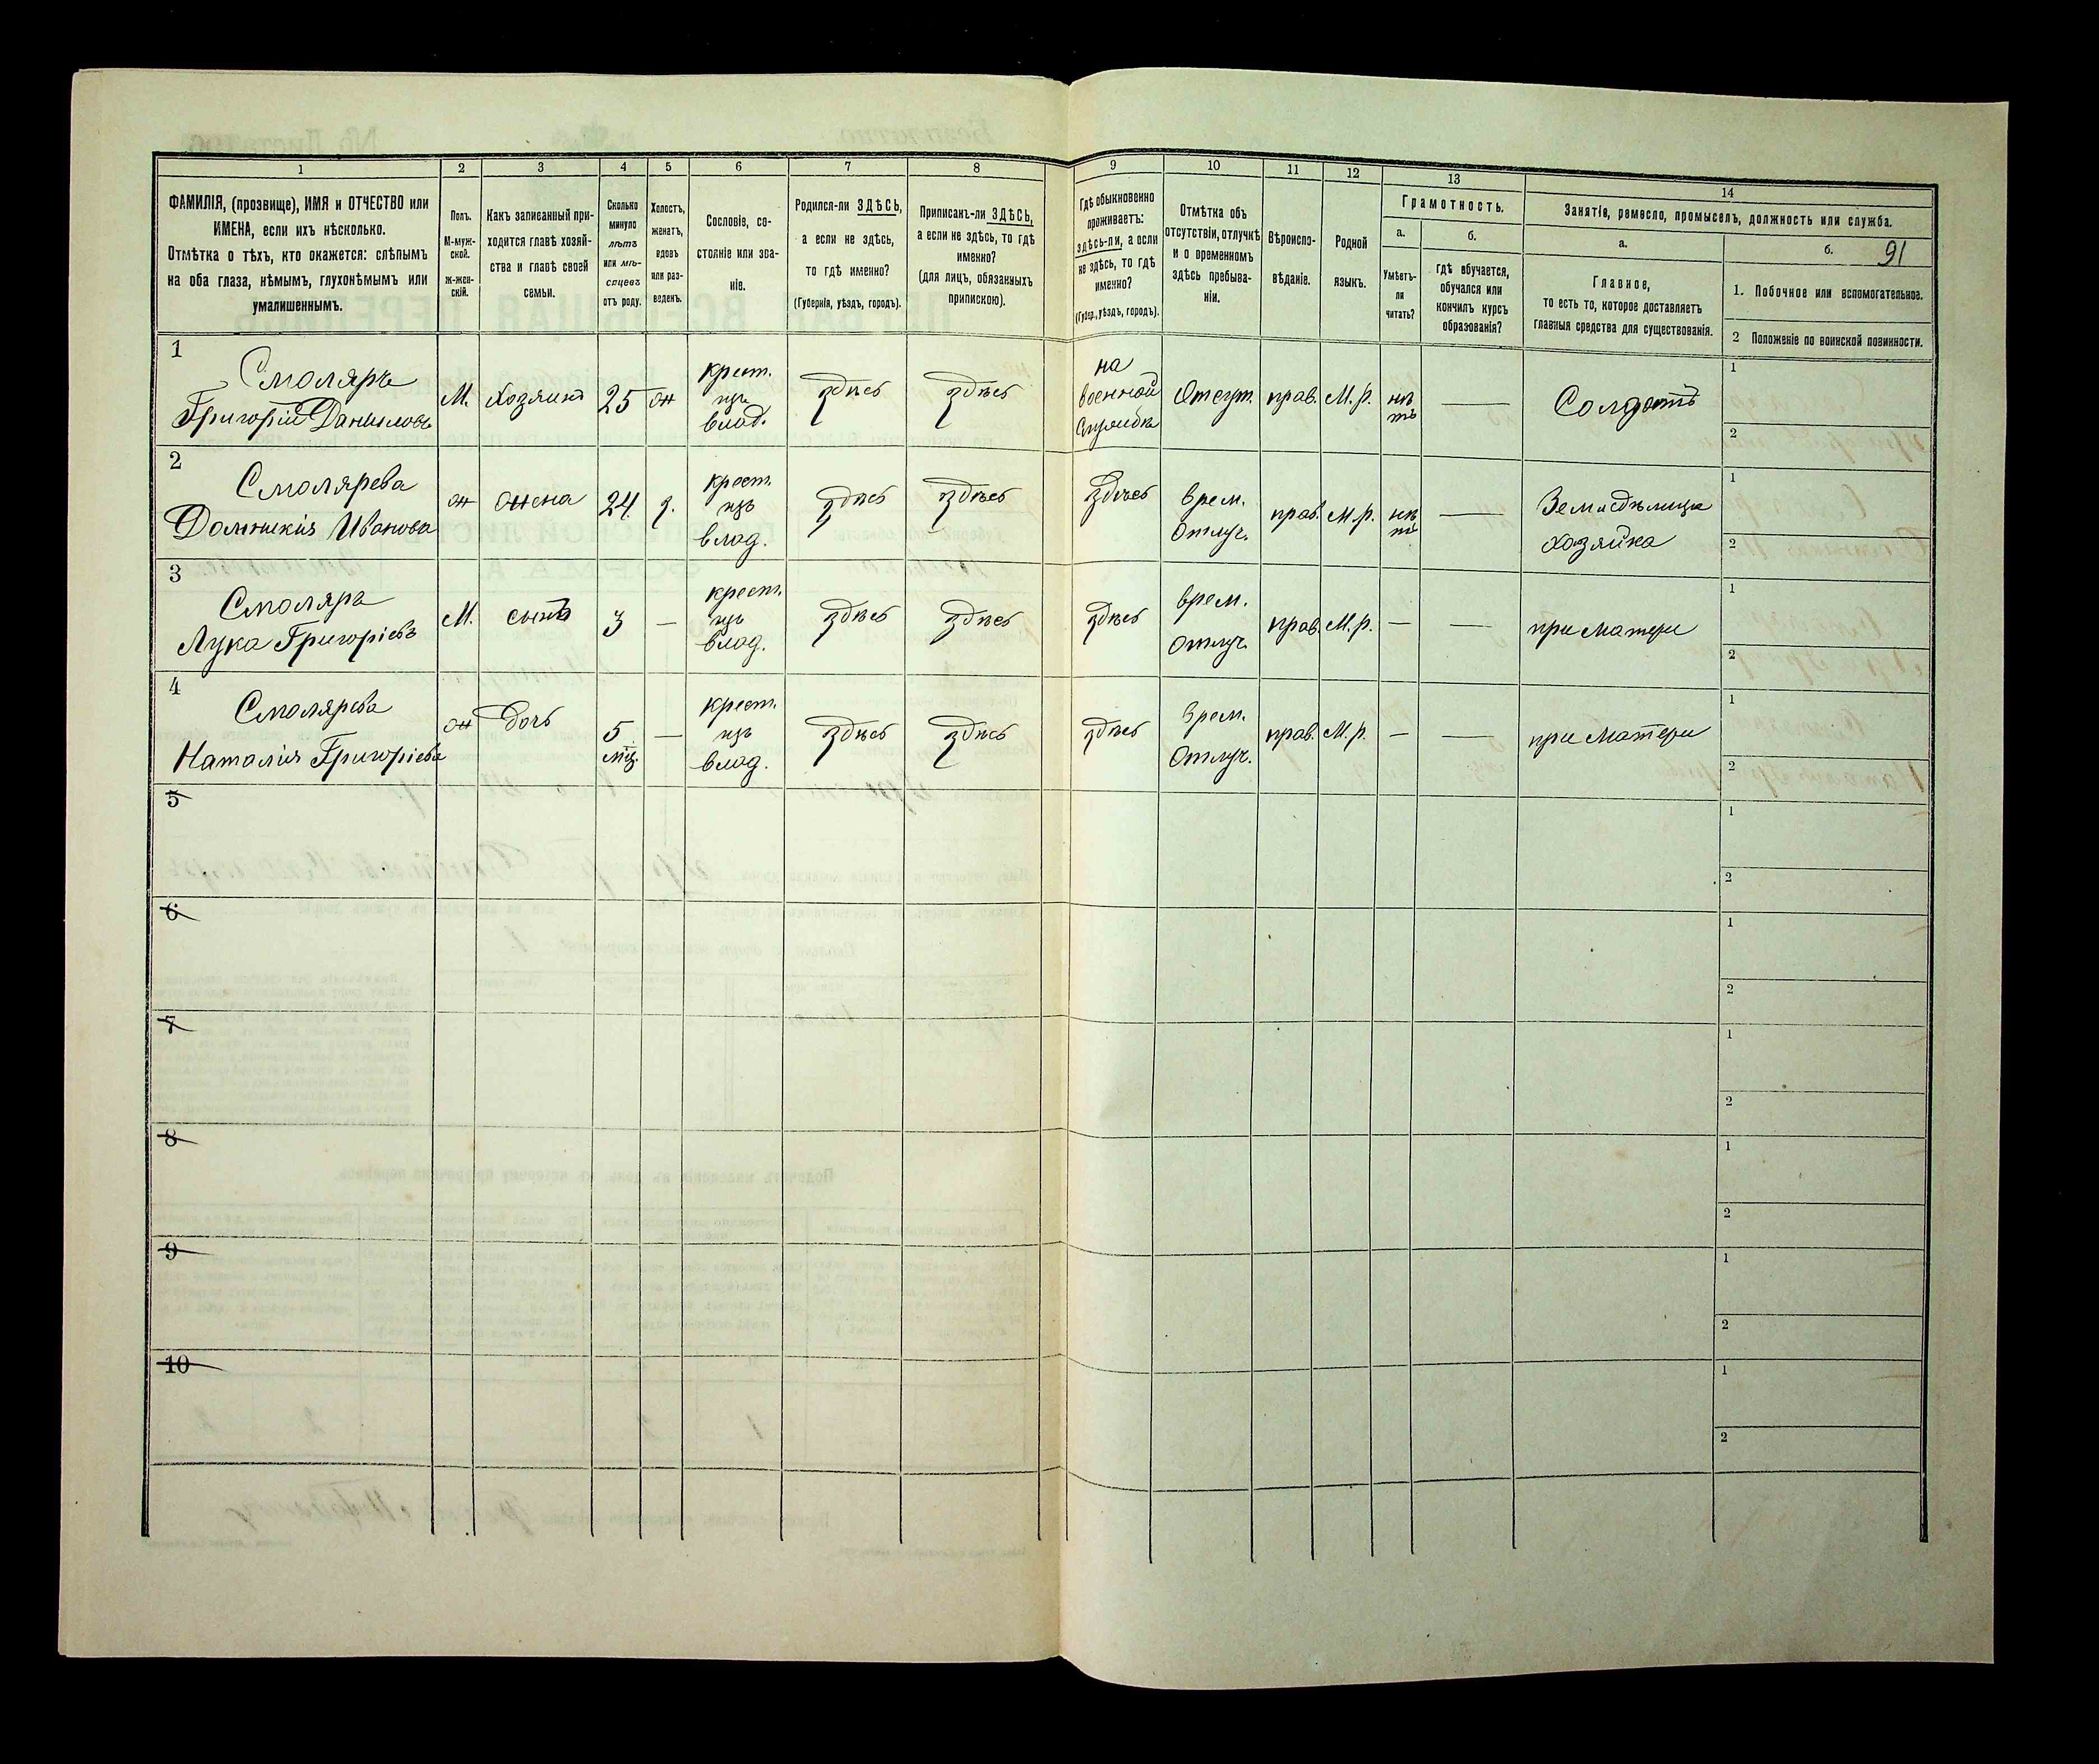 1 2 3 4 5 6 7 8 9 10 11 12 13 14
ФАМИЛІЯ, (прозвище), ИМЯ и ОТЧЕСТВО или
ИМЕНА, если ихъ нѣсколько.
Отмѣтка о тѣхъ, кто окажется: слѣпымъ
на оба глаза, нѣмымъ, глухонѣмымъ или
умалишеннымъ.
Полъ.
М-муж-
ской.
Ж-жен-
скій.
Какъ записанный при-
ходится главѣ хозяй-
ства и главѣ своей
семьи.
Сколько
минуло
лѣтъ
или мѣ-
сяцевъ
отъ роду.
Холостъ,
женатъ,
вдовъ
или раз-
веденъ.
Сословіе, со-
стояніе или зва-
ніе.
Родился-ли ЗДѢСЬ,
а если не здѣсь,
то гдѣ именно?
(Губернія, уѣздъ, городъ).
Приписанъ-ли ЗДѢСЬ,
а если не здѣсь, то гдѣ
именно?
(для лицъ, обязанныхъ
припискою).
Гдѣ обыкновенно
проживаетъ:
здѣсь-ли, а если
не здѣсь, то гдѣ
именно?
(Губер., уѣздъ, городъ).
Отмѣтка объ
отсутствіи, отлучкѣ
и о временномъ
здѣсь пребыва-
ніи.
Вѣроиспо-
вѣданіе.
Родной
языкъ.
Грамотность.
а.
Умѣетъ-
ли
читать?
б.
Гдѣ обучается,
обучался или
кончилъ курсъ
образованія?
Занятіе, ремесло, промыселъ, должность или служба.
а.
Главное,
то есть то, которое доставляетъ
главныя средства для существованія.
б. 91
1. Побочное или вспомогательное.
2 Положеніе по воинской повинности.
1
Смоляръ
Григорій Даниловъ
М. Хозяинъ 25 ж
крест.
изъ
влад.
здѣсь здѣсь
на
военной
службѣ
Отсут. прав. М.р.
нѣ
тъ
— Солдатъ
1
2
2
Смолярева
Домникія Иванова
ж жена 24 з.
крест.
изъ
влад.
здѣсь здѣсь здѣсь
врем.
отлуч.
прав. М.р.
нѣ
тъ
—
Земледѣлица
хозяйка
1
2
3
Смоляръ
Лука Григоріевъ
М. сынъ 3 —
крест.
изъ
влад.
здѣсь здѣсь здѣсь
врем.
отлуч.
прав. М.р. — — при матери
1
2
4
Смолярева
Наталія Григоріева
ж дочь
5
мѣс.
—
крест.
изъ
влад.
здѣсь здѣсь здѣсь
врем.
отлуч.
прав. М.р. — — при матери
1
2
5
1
2
6
1
2
7
1
2
8
1
2
9
1
2
10
1
2